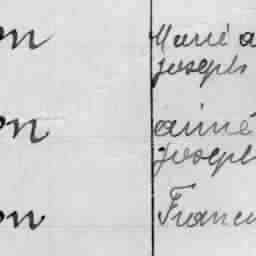 on Marié a
Joseph
on aimé
Joseph
on Franc